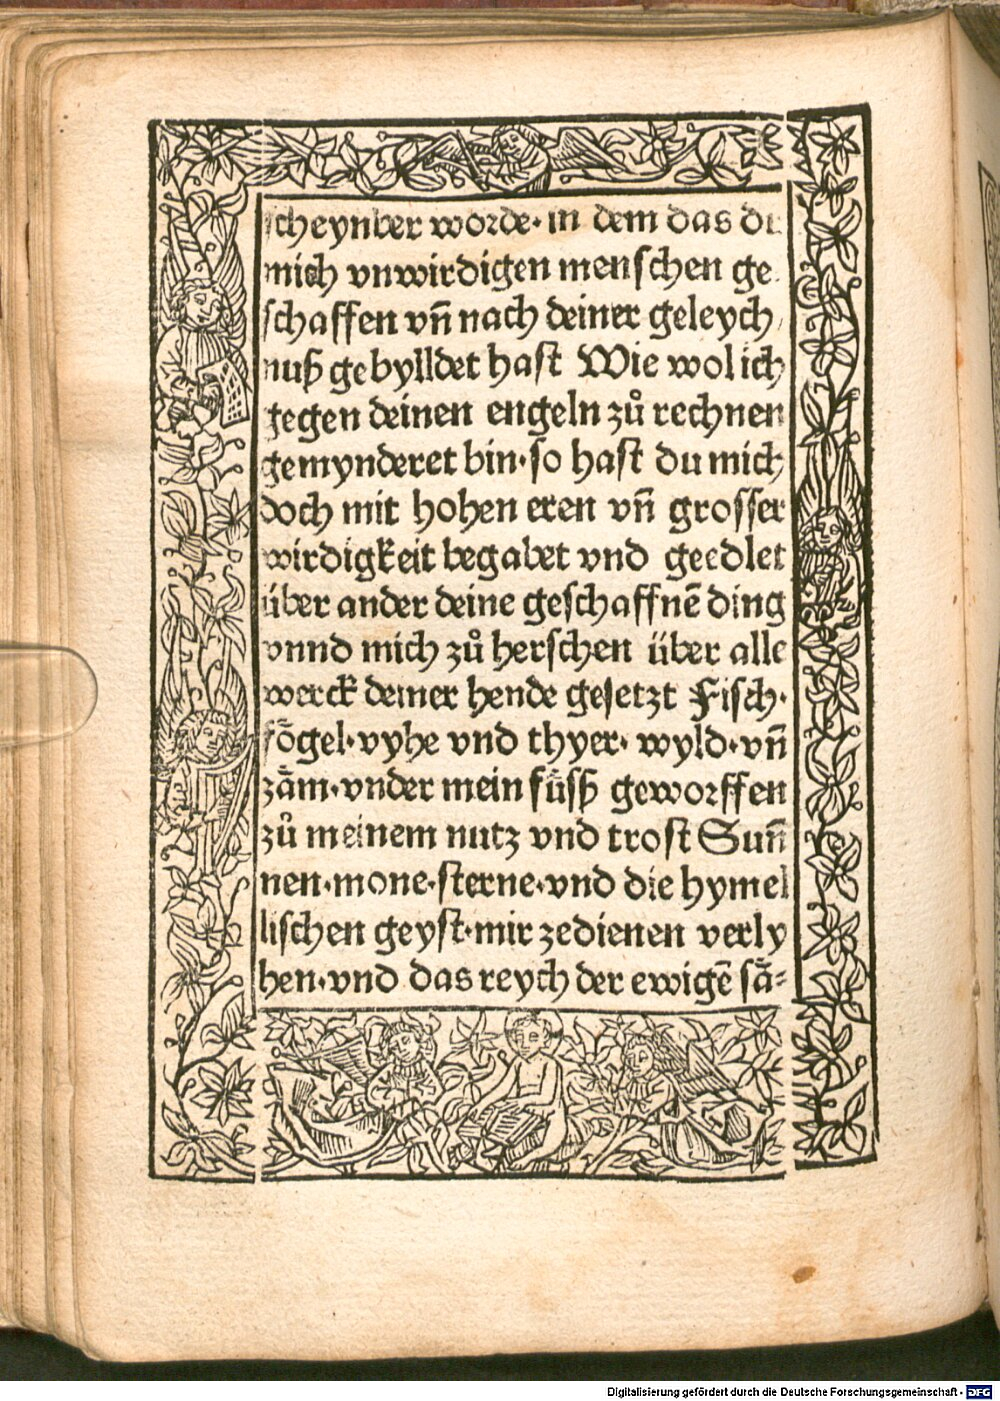 scheynber worde· in dem das du
mich vnwirdigen menschen ge
schaffen vn̄ nach deiner geleych
nuß gebylldet hast Wie wol ich
gegen deinen engeln zů rechnen
gemynderet bin· so hast du mich
doch mit hohen eren vn̄ grosser
wirdigkeit begabet vnd geedlet
über ander deine geschaffnē ding
vnnd mich zů herschen über alle
werck deiner hende gesetzt Fisch·
fo᷎gel· vyhe vnd thyer· wyld· vn̄
zaͤm· vnder mein fuͤsß geworffen
zů meinem nutz vnd trost Sun̄
nen· mone· sterne· vnd die hymel
lischen geyst· mir zedienen verly
hen· vnd das reych der ewigē saͤ⸗
Digitalisierung gefördert durch die Deutsche Forschungsgemeinschaft - DFG